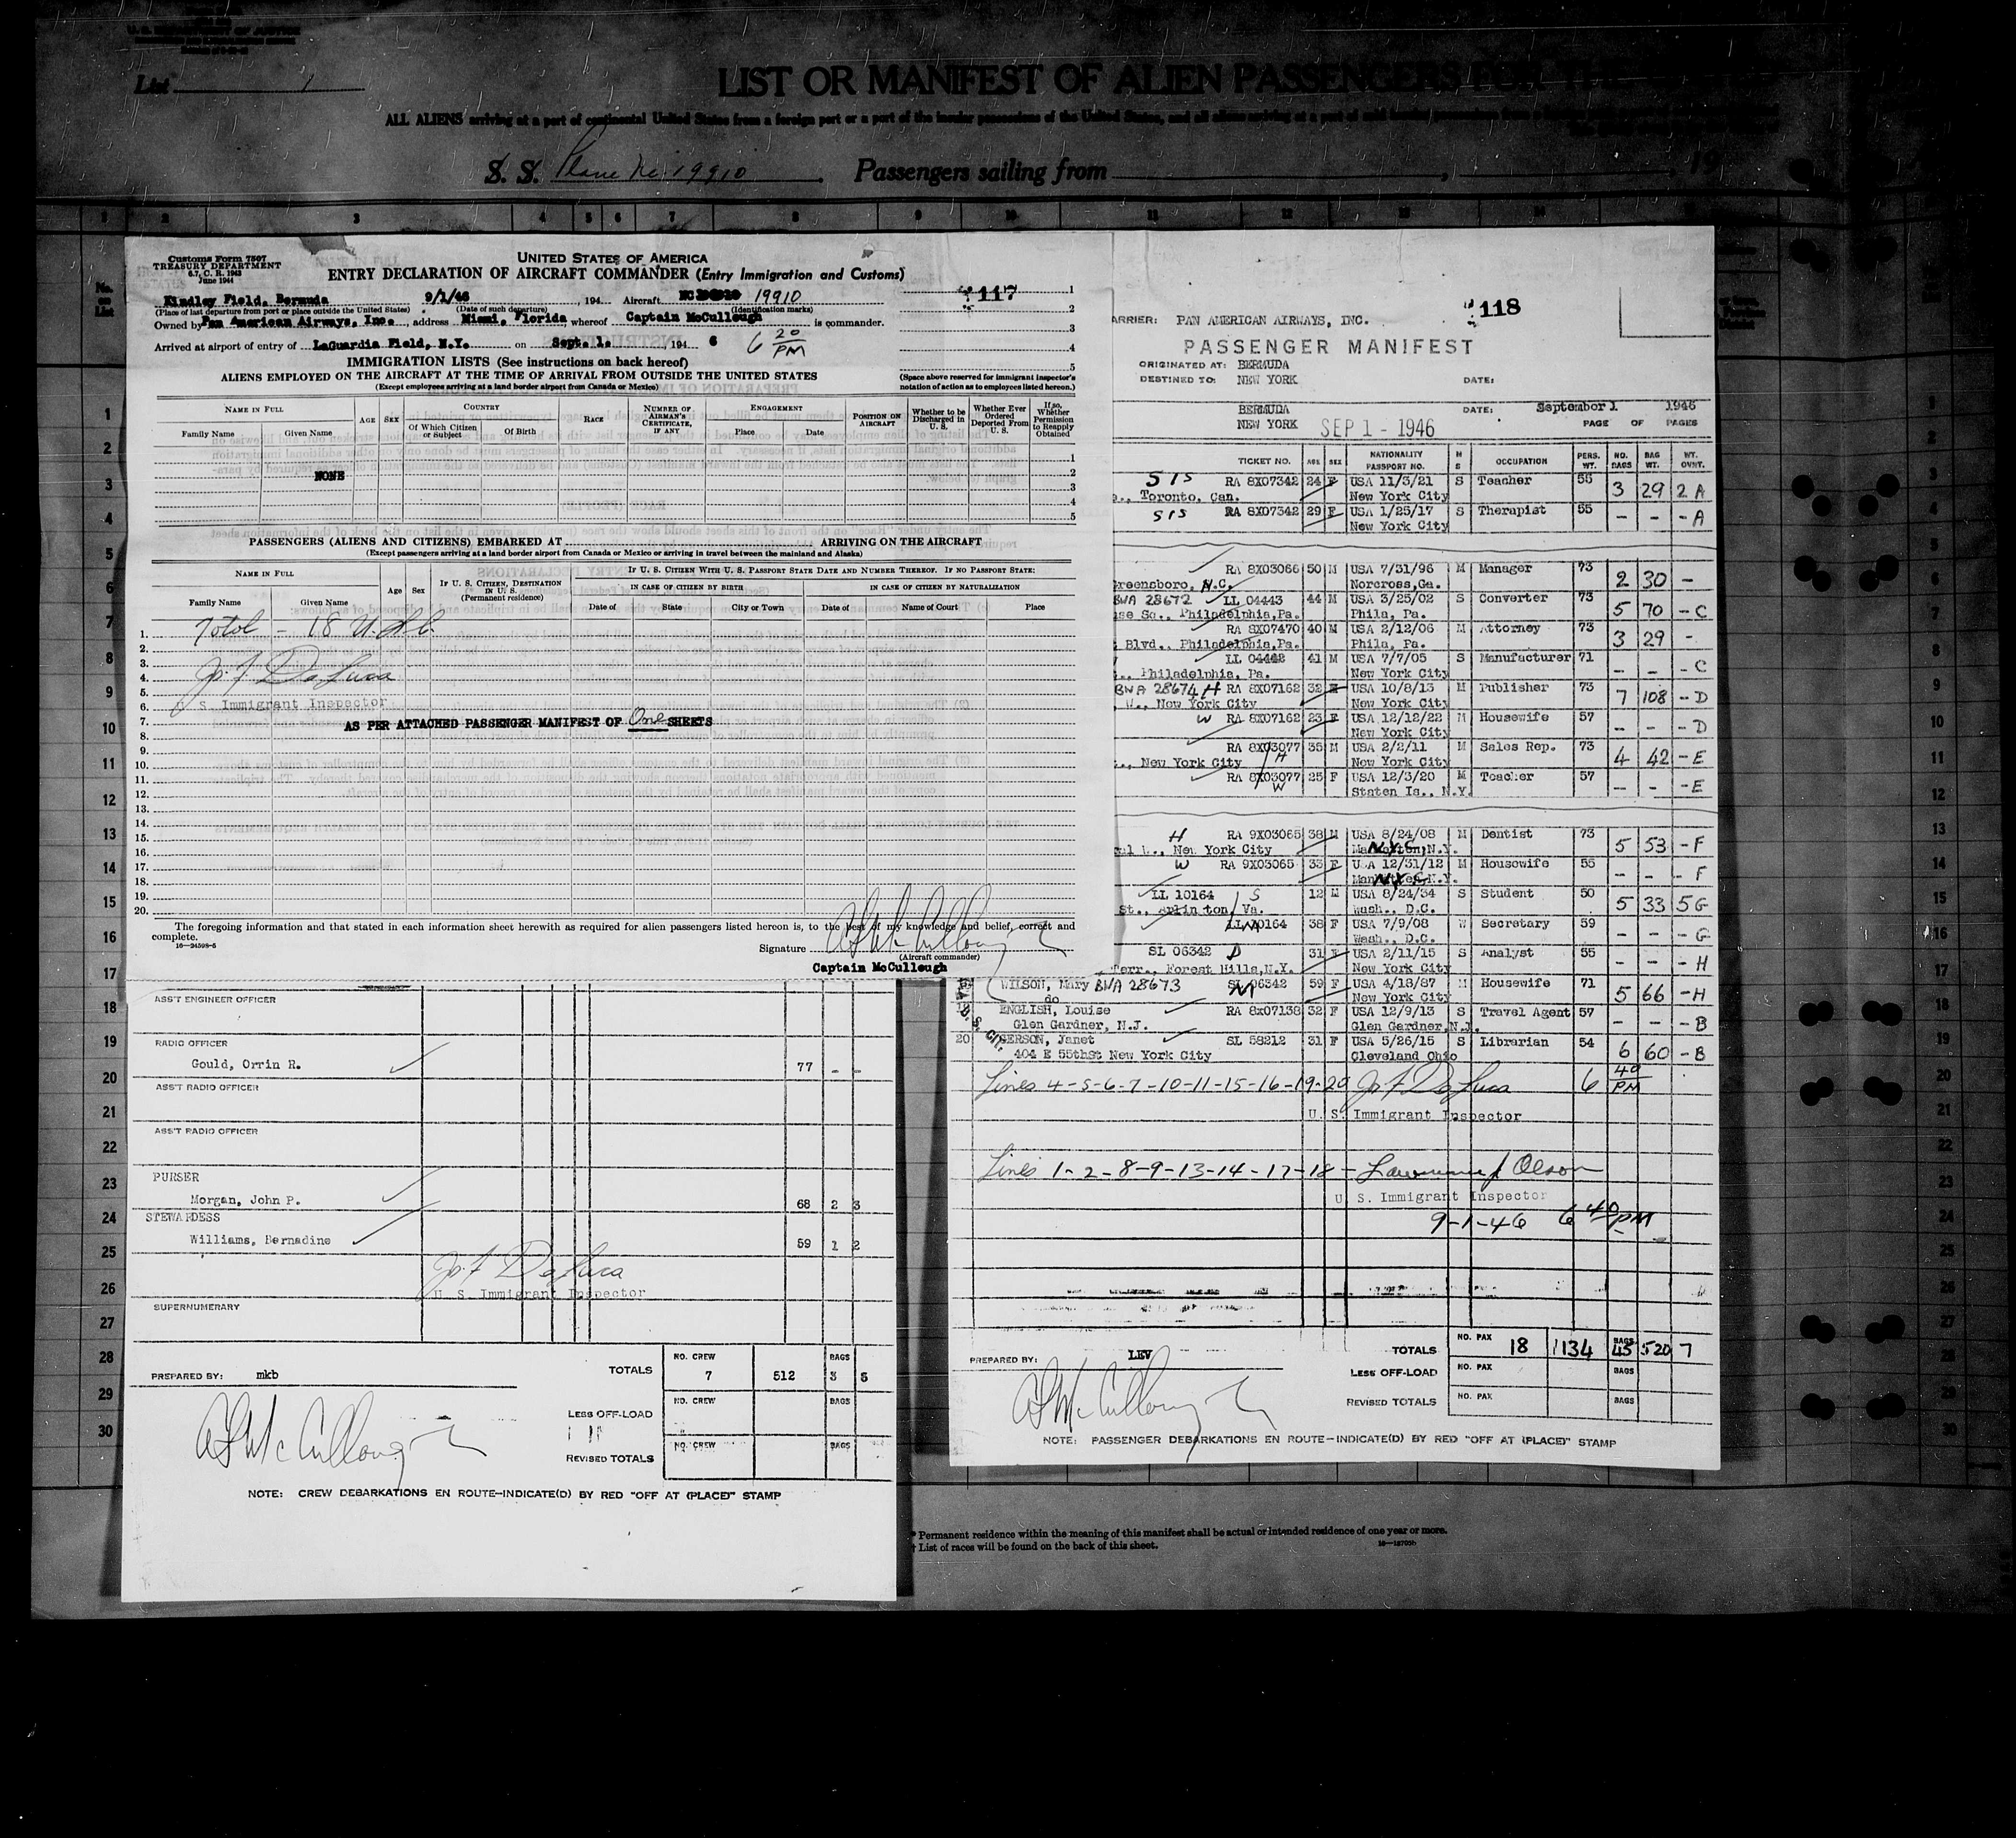 U. S. DEPARTMENT OF JUSTICE
List 1
LIST OR MANIFEST OF ALIEN PASSENGERS FOR THE
ALL ALIENS arriving at a port of continental United States from a foreign port or a port of the insular possessions of the United States, and all aliens arriving at a port of said insular possessions from a foreign port
S. S. Plane No. 19910 Passengers sailing from , 19
1 2 3 4 5 6 7 8 9 10 11 12 13 14
Customs Form 7507
TREASURY DEPARTMENT
6.7, C. R. 1943
June 1944
UNITED STATES OF AMERICA
ENTRY DECLARATION OF AIRCRAFT COMMANDER (Entry Immigration and Customs)
117
Kindley Field, Bermuda 9/1/46, 194 Aircraft NC 19910
(Place of last departure from port or place outside the United States) (Date of such departure) (Identification marks)
Owned by Pan American Airways, Inc., address Miami, Florida, whereof Captain McCullough is commander.
Arrived at airport of entry of LaGuardia Field, N.Y. on Sept. 1, 194 6 6 20 PM
IMMIGRATION LISTS (See instructions on back hereof)
ALIENS EMPLOYED ON THE AIRCRAFT AT THE TIME OF ARRIVAL FROM OUTSIDE THE UNITED STATES
(Except employees arriving at a land border airport from Canada or Mexico)
(Space above reserved for immigrant inspector's notation of action as to employees listed hereon.)
NAME IN FULL
Family Name Given Name
AGE SEX
COUNTRY
Of Which Citizen or Subject Of Birth
RACE
NUMBER OF AIRMAN'S CERTIFICATE, IF ANY
ENGAGEMENT
Place Date
POSITION ON AIRCRAFT
Whether to be Discharged in U. S.
Whether Ever Ordered Deported From U. S.
If so, Whether Permission to Reapply Obtained
NONE
PASSENGERS (ALIENS AND CITIZENS) EMBARKED AT ARRIVING ON THE AIRCRAFT
(Except passengers arriving at a land border airport from Canada or Mexico or arriving in travel between the mainland and Alaska)
NAME IN FULL
Family Name Given Name
Age Sex
IF U. S. CITIZEN, DESTINATION IN U. S.
(Permanent residence)
IF U. S. CITIZEN WITH U. S. PASSPORT STATE DATE AND NUMBER THEREOF. IF NO PASSPORT STATE:
IN CASE OF CITIZEN BY BIRTH IN CASE OF CITIZEN BY NATURALIZATION
Date of State City or Town Date of Name of Court Place
Total - 18 U.S.C.
Jo. F. DeLuca
U. S. Immigrant Inspector
AS PER ATTACHED PASSENGER MANIFEST OF One SHEETS
The foregoing information and that stated in each information sheet herewith as required for alien passengers listed hereon is, to the best of my knowledge and belief, correct and complete.
16—24598-5
Signature
(Aircraft commander)
Captain McCullough
ASS'T ENGINEER OFFICER
RADIO OFFICER
Gould, Orrin R. 77 - -
ASS'T RADIO OFFICER
ASS'T RADIO OFFICER
PURSER
Morgan, John P. 68 2 3
STEWARDESS
Williams, Bernadine 59 1 2
Jo. F. DeLuca
U. S. Immigrant Inspector
SUPERNUMERARY
PREPARED BY: mkb
TOTALS NO. CREW 7 512 BAGS 3 5
LESS OFF-LOAD NO. CREW BAGS
REVISED TOTALS NO. CREW BAGS
NOTE: CREW DEBARKATIONS EN ROUTE—INDICATE(D) BY RED "OFF AT (PLACE)" STAMP
118
CARRIER: PAN AMERICAN AIRWAYS, INC.
PASSENGER MANIFEST
ORIGINATED AT: BERMUDA
DESTINED TO: NEW YORK DATE:
BERMUDA DATE: September 1 1946
NEW YORK SEP 1 - 1946 PAGE OF PAGES
TICKET NO. AGE SEX NATIONALITY PASSPORT NO. M S OCCUPATION PERS. WT. NO. BAGS BAG WT. WT. OVNT.
SIS RA 8X07342 24 F USA 11/3/21 S Teacher 55 3 29 2 A
Toronto, Can. New York City
SIS RA 8X07342 29 F USA 1/25/17 S Therapist 55 - - - A
New York City
RA 8X03066 50 M USA 7/31/96 M Manager 73 2 30 -
Greensboro, N.C. Norcross, Ga.
BWA 28672 LL 04443 44 M USA 3/25/02 S Converter 73 5 70 - C
se Sq., Philadelphia, Pa. Phila, Pa.
RA 8X07470 40 M USA 2/12/06 M Attorney 73 3 29 -
Blvd., Philadelphia, Pa. Phila, Pa.
LL 04442 41 M USA 7/7/05 S Manufacturer 71 - - - C
Philadelphia, Pa. New York City
BWA 28674 H RA 8X07162 32 USA 10/8/13 M Publisher 73 7 108 - D
W., New York City New York City
W RA 8X07162 23 F USA 12/12/22 M Housewife 57 - - - D
New York City
RA 8X03077 35 M USA 2/2/11 M Sales Rep. 73 4 42 - E
New York City H New York City
RA 8X03077 25 F USA 12/3/20 M Teacher 57 - - - E
W Staten Is., N.Y.
H RA 9X03065 38 M USA 8/24/08 M Dentist 73 5 53 - F
New York City N.Y.C.
W RA 9X03065 33 F USA 12/31/12 M Housewife 55 - - - F
LL 10164 S 12 M USA 8/24/34 S Student 50 5 33 5 G
St., Arlington, Va. Wash., D.C.
LL 10164 38 F USA 7/9/08 W Secretary 59 - - - G
Wash., D.C.
SL 06342 D 31 F USA 2/11/15 S Analyst 55 - - - H
Terr., Forest Hills, N.Y. New York City
WILSON, Mary BWA 28673 SL 06342 M 59 F USA 4/18/87 M Housewife 71 5 66 - H
do New York City
ENGLISH, Louise RA 8x07138 32 F USA 12/9/13 S Travel Agent 57 - - - B
Glen Gardner, N.J. Glen Gardner, N.J.
20 GERSON, Janet SL 58212 31 F USA 5/26/15 S Librarian 54 6 60 - B
404 E 55thSt New York City Cleveland Ohio
Lines 4-5-6-7-10-11-15-16-19-20 Jo. F. DeLuca 6 40 PM
U. S. Immigrant Inspector
Lines 1-2-8-9-13-14-17-18 - Lawrence J Olson
U. S. Immigrant Inspector
9-1-46 6 40 PM
PREPARED BY: LEV
TOTALS NO. PAX 18 1134 BAGS 45 520 7
LESS OFF-LOAD NO. PAX BAGS
REVISED TOTALS NO. PAX BAGS
NOTE: PASSENGER DEBARKATIONS EN ROUTE—INDICATE(D) BY RED "OFF AT (PLACE)" STAMP
* Permanent residence within the meaning of this manifest shall be actual or intended residence of one year or more.
† List of races will be found on the back of this sheet.